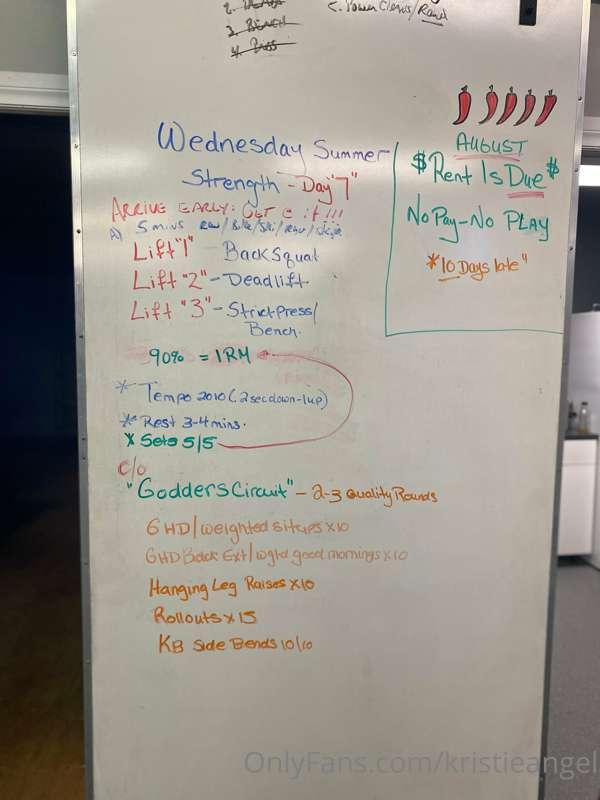 3. BENCH
c. Power Cleans/
Wednesday Summer
Strength - Day "7"
ARRIVE EARLY: GET @ it!!!
A) 5 mins row/bike/ski/
Lift "1" - Back Squat
Lift "2" - Deadlift
Lift "3" - Strict Press/
Bench.
90% = 1RM
* Tempo 2010 (2 sec down-1up)
* Rest 3-4 mins.
* Sets 5/5
C/O
"Godders Circuit" - 2-3 Quality Rounds
GHD/weighted situps x10
GHD Back Ext/wgtd good mornings x10
Hanging Leg Raises x10
Rollouts x 15
KB Side Bends 10/10
AUGUST
$Rent Is Due$
No Pay-No PLAY
*10 Days late"
OnlyFans.com/kristieangel